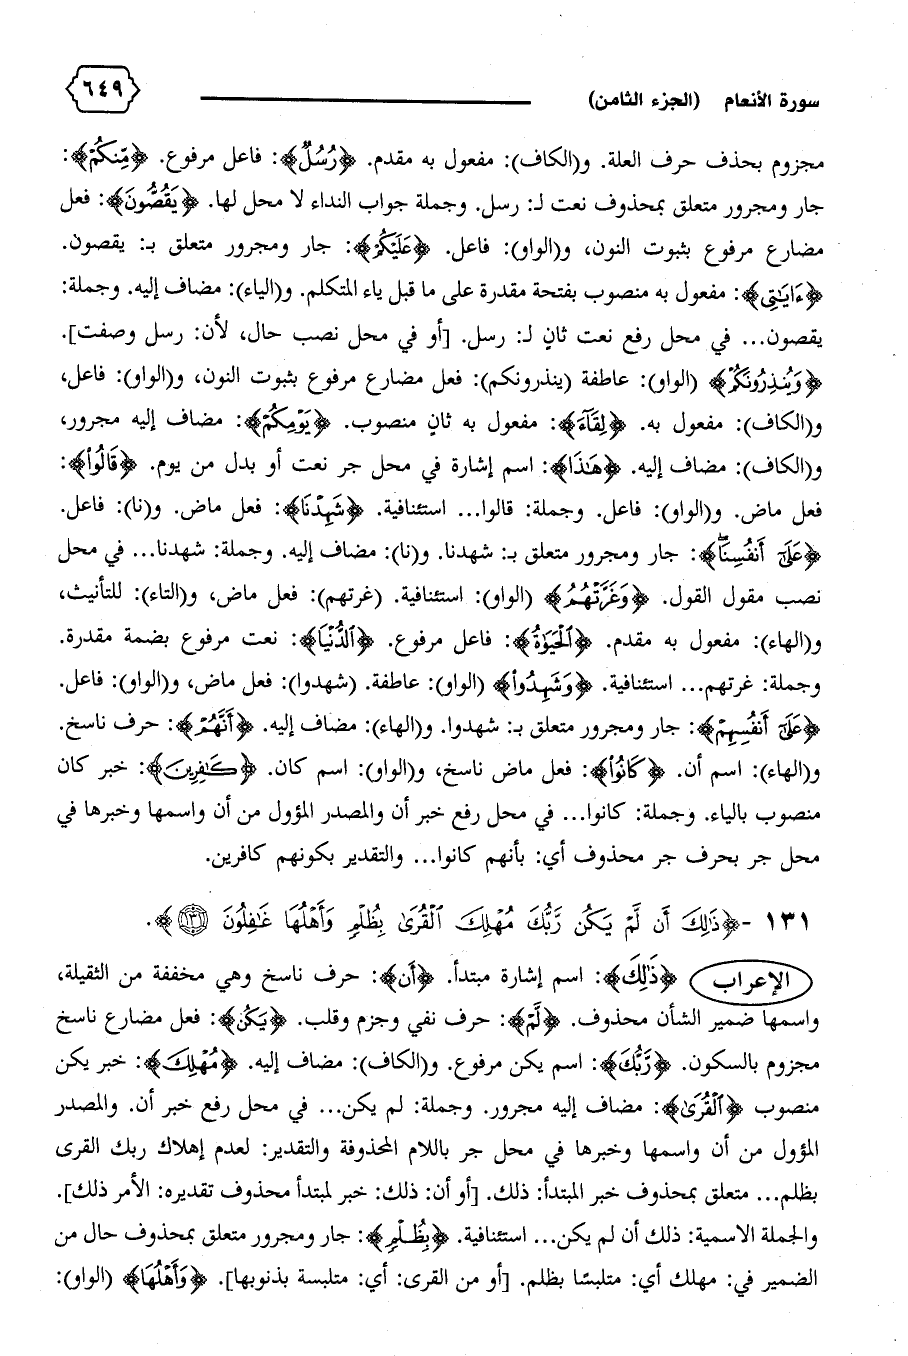 سورة الأنعام (الجزء الثامن) ٦٤٩
مجزوم بحذف حرف العلة. و(الكاف): مفعول به مقدم. ﴿رُسُلٌ﴾: فاعل مرفوع. ﴿مِّنكُمْ﴾:
جار ومجرور متعلق بمحذوف نعت لـ: رسل. وجملة جواب النداء لا محل لها. ﴿يَقُصُّونَ﴾: فعل
مضارع مرفوع بثبوت النون، و(الواو): فاعل. ﴿عَلَيْكُمْ﴾: جار ومجرور متعلق بـ: يقصون.
﴿ءَايَٰتِى﴾: مفعول به منصوب بفتحة مقدرة على ما قبل ياء المتكلم. و(الياء): مضاف إليه. وجملة:
يقصون... في محل رفع نعت ثانٍ لـ: رسل. [أو في محل نصب حال، لأن: رسل وصفت].
﴿وَيُنذِرُونَكُمْ﴾ (الواو): عاطفة (ينذرونكم): فعل مضارع مرفوع بثبوت النون، و(الواو): فاعل،
و(الكاف): مفعول به. ﴿لِقَآءَ﴾: مفعول به ثانٍ منصوب. ﴿يَوْمِكُمْ﴾: مضاف إليه مجرور،
و(الكاف): مضاف إليه. ﴿هَٰذَا﴾: اسم إشارة في محل جر نعت أو بدل من يوم. ﴿قَالُوا۟﴾:
فعل ماض. و(الواو): فاعل. وجملة: قالوا... استئنافية. ﴿شَهِدْنَا﴾: فعل ماض. و(نا): فاعل.
﴿عَلَىٰٓ أَنفُسِنَا ۖ﴾: جار ومجرور متعلق بـ: شهدنا. و(نا): مضاف إليه. وجملة: شهدنا... في محل
نصب مقول القول. ﴿وَغَرَّتْهُمُ﴾ (الواو): استئنافية. (غرتهم): فعل ماض، و(التاء): للتأنيث،
و(الهاء): مفعول به مقدم. ﴿ٱلْحَيَوٰةُ﴾: فاعل مرفوع. ﴿ٱلدُّنْيَا﴾: نعت مرفوع بضمة مقدرة.
وجملة: غرتهم... استئنافية. ﴿وَشَهِدُوا۟﴾ (الواو): عاطفة. (شهدوا): فعل ماض، و(الواو): فاعل.
﴿عَلَىٰٓ أَنفُسِهِمْ﴾: جار ومجرور متعلق بـ: شهدوا. و(الهاء): مضاف إليه. ﴿أَنَّهُمْ﴾: حرف ناسخ.
و(الهاء): اسم أن. ﴿كَانُوا۟﴾: فعل ماض ناسخ، و(الواو): اسم كان. ﴿كَٰفِرِينَ﴾: خبر كان
منصوب بالياء. وجملة: كانوا... في محل رفع خبر أن والمصدر المؤول من أن واسمها وخبرها في
محل جر بحرف جر محذوف أي: بأنهم كانوا... والتقدير بكونهم كافرين.
١٣١ - ﴿ذَٰلِكَ أَن لَّمْ يَكُن رَّبُّكَ مُهْلِكَ ٱلْقُرَىٰ بِظُلْمٍ وَأَهْلُهَا غَٰفِلُونَ ١٣١﴾.
الإعراب ﴿ذَٰلِكَ﴾: اسم إشارة مبتدأ. ﴿أَن﴾: حرف ناسخ وهي مخففة من الثقيلة،
واسمها ضمير الشأن محذوف. ﴿لَّمْ﴾: حرف نفي وجزم وقلب. ﴿يَكُن﴾: فعل مضارع ناسخ
مجزوم بالسكون. ﴿رَّبُّكَ﴾: اسم يكن مرفوع. و(الكاف): مضاف إليه. ﴿مُهْلِكَ﴾: خبر يكن
منصوب ﴿ٱلْقُرَىٰ﴾: مضاف إليه مجرور. وجملة: لم يكن... في محل رفع خبر أن. والمصدر
المؤول من أن واسمها وخبرها في محل جر باللام المحذوفة والتقدير: لعدم إهلاك ربك القرى
بظلم... متعلق بمحذوف خبر المبتدأ: ذلك. [أو أن: ذلك: خبر لمبتدأ محذوف تقديره: الأمر ذلك].
والجملة الاسمية: ذلك أن لم يكن... استئنافية. ﴿بِظُلْمٍ﴾: جار ومجرور متعلق بمحذوف حال من
الضمير في: مهلك أي: متلبسًا بظلم. [أو من القرى: أي: متلبسة بذنوبها]. ﴿وَأَهْلُهَا﴾ (الواو):